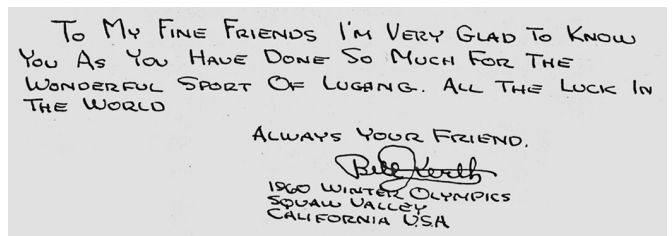 To My Fine Friends I'm Very Glad To Know
You As You Have Done So Much For The
Wonderful Sport Of Lugang. All The Luck In
The World
Always Your Friend.
Bill Kerth
1960 Winter Olympics
Squaw Valley
California U.S.A